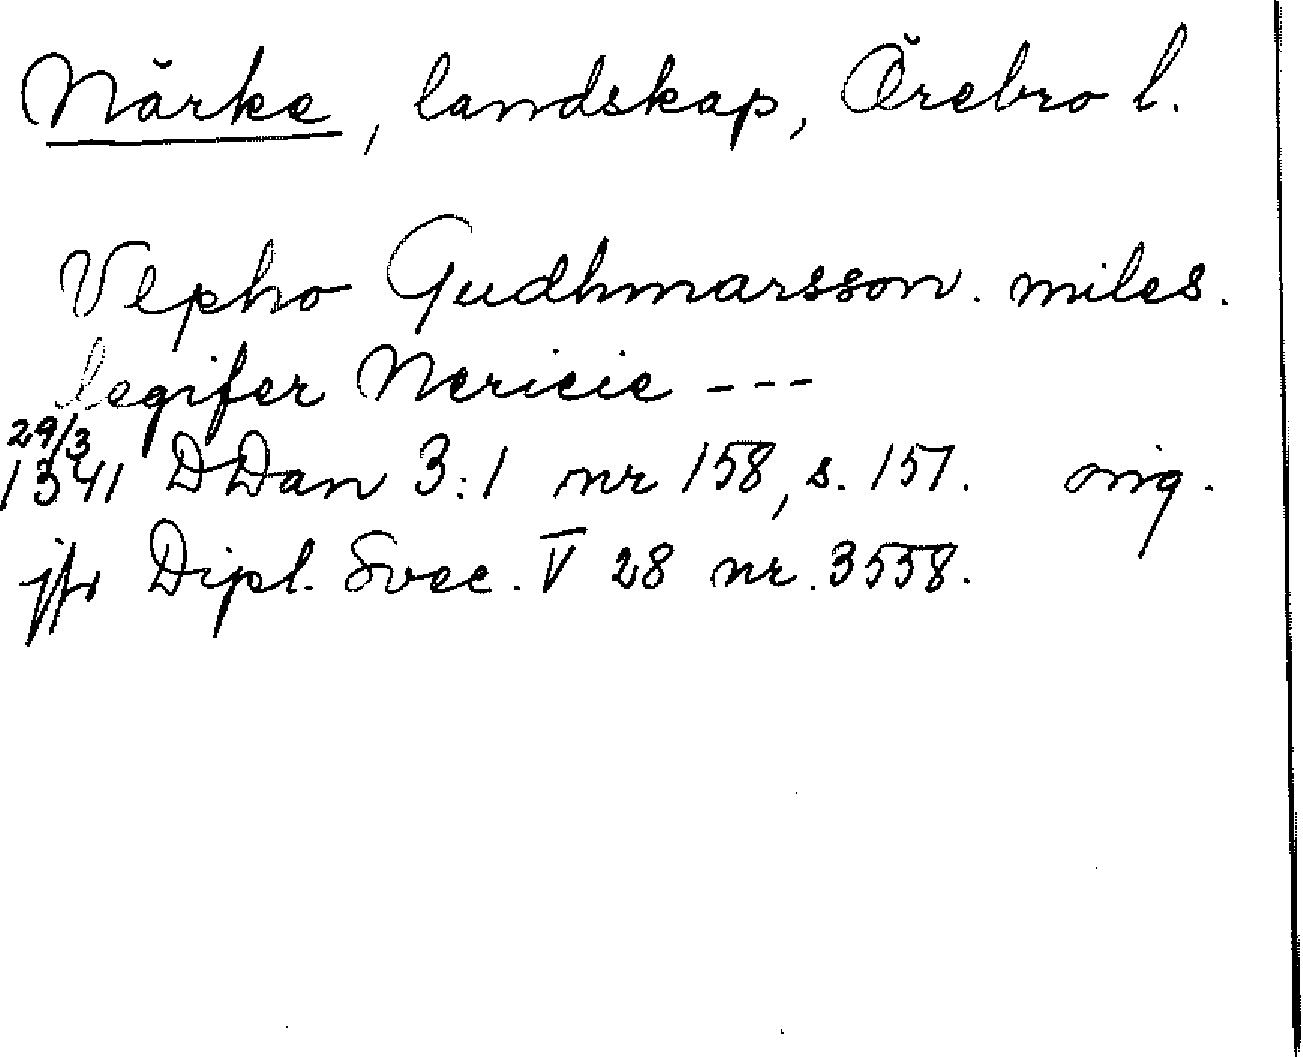 Närke, landskap, Örebro l.
Vlpho Gudhmarsson. miles.
legifer Nericie ---
29/3
1341 DDan 3:1 nr 158, s. 157. orig.
jfr Dipl. Svec. V 28 nr. 3558.